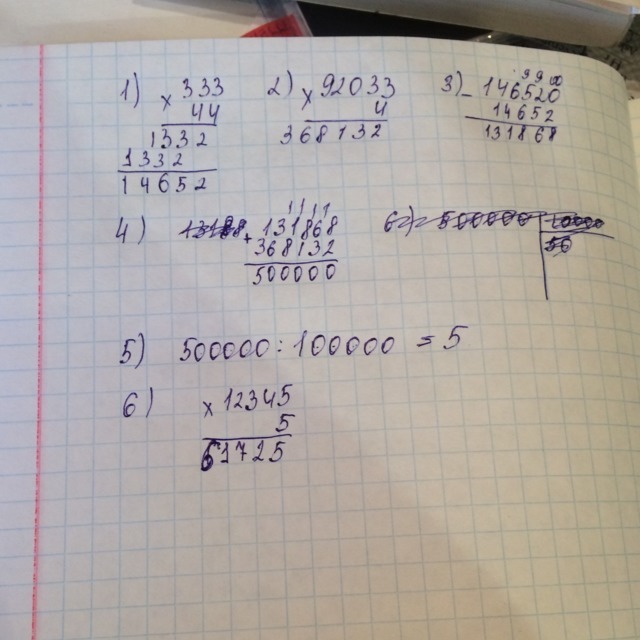 1) × 333
44
1332
1332
14652
2) × 92033
4
368132
3) - 146520
14652
131868
4) 131868
+ 368132
500000
5) 500000 : 100000 = 5
6) × 12345
5
61725